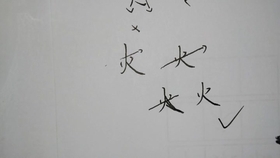 火 火
火 火